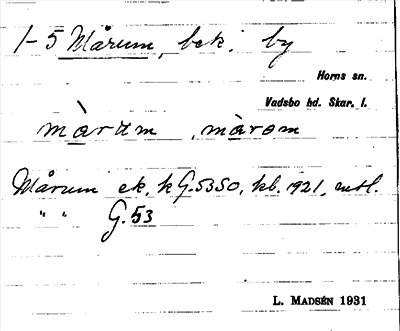 1-5 Mårum, bek. by
Horns sn.
Vadsbo hd. Skar. l.
màrum , màrom
Mårum ek. k G.5350, kb. 1921, mtl.
" " G.53
L. MADSÉN 1931